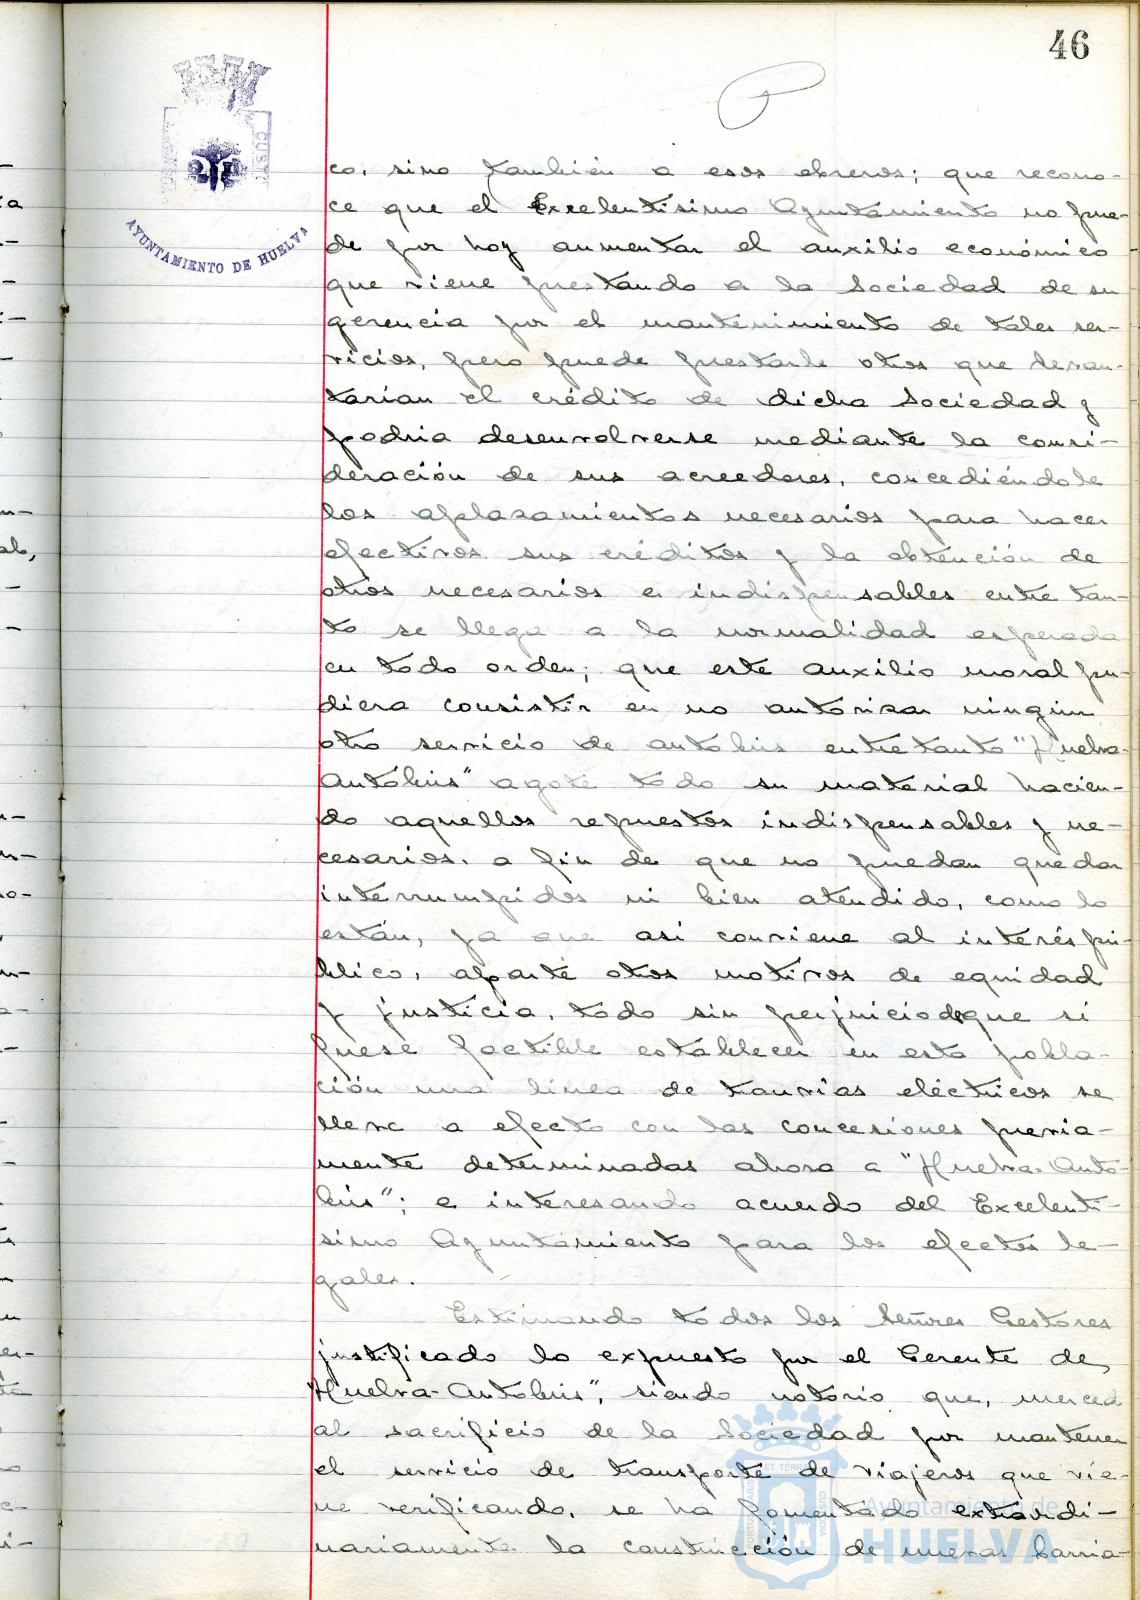 46
AYUNTAMIENTO DE HUELVA
co, sino también a esos obreros; que recono-
ce que el Excelentísimo Ayuntamiento no pue-
de por hoy aumentar el auxilio económico
que viene prestando a la Sociedad de su
gerencia por el mantenimiento de tales ser-
vicios, pero puede prestarle otros que levan-
tarian el crédito de dicha Sociedad y
podria desenvolverse mediante la consi-
deración de sus acreedores, concediéndole
los aplazamientos necesarios para hacer
efectivos sus créditos y la obtención de
otros necesarios e indispensables entre tan-
to se llega a la normalidad esperada
en todo orden; que este auxilio moral pu-
diera consistir en no autorizar ningún
otro servicio de autobús entretanto "Huelva-
Autobús" agote todo su material hacien-
do aquellos repuestos indispensables y ne-
cesarios, a fin de que no puedan quedar
interrumpidos ni bien atendido, como lo
están, ya que asi conviene al interés pú-
blico, aparte otros motivos de equidad
y justicia, todo sin perjuicio de que si
fuese factible establecer en esta pobla-
ción una línea de tranvías eléctricos se
lleve a efecto con las concesiones previa-
mente determinadas ahora a "Huelva-Auto-
bús"; e interesando acuerdo del Excelentí-
simo Ayuntamiento para los efectos le-
gales.
Estimando todos los Señores Gestores
justificado lo expuesto por el Gerente de
"Huelva-Autobús", siendo notorio que, merced
al sacrificio de la Sociedad por mantener
el servicio de transporte de viajeros que vie-
ne verificando, se ha fomentado extraordi-
nariamente la construcción de nuevas barria-
Ayuntamiento de
HUELVA